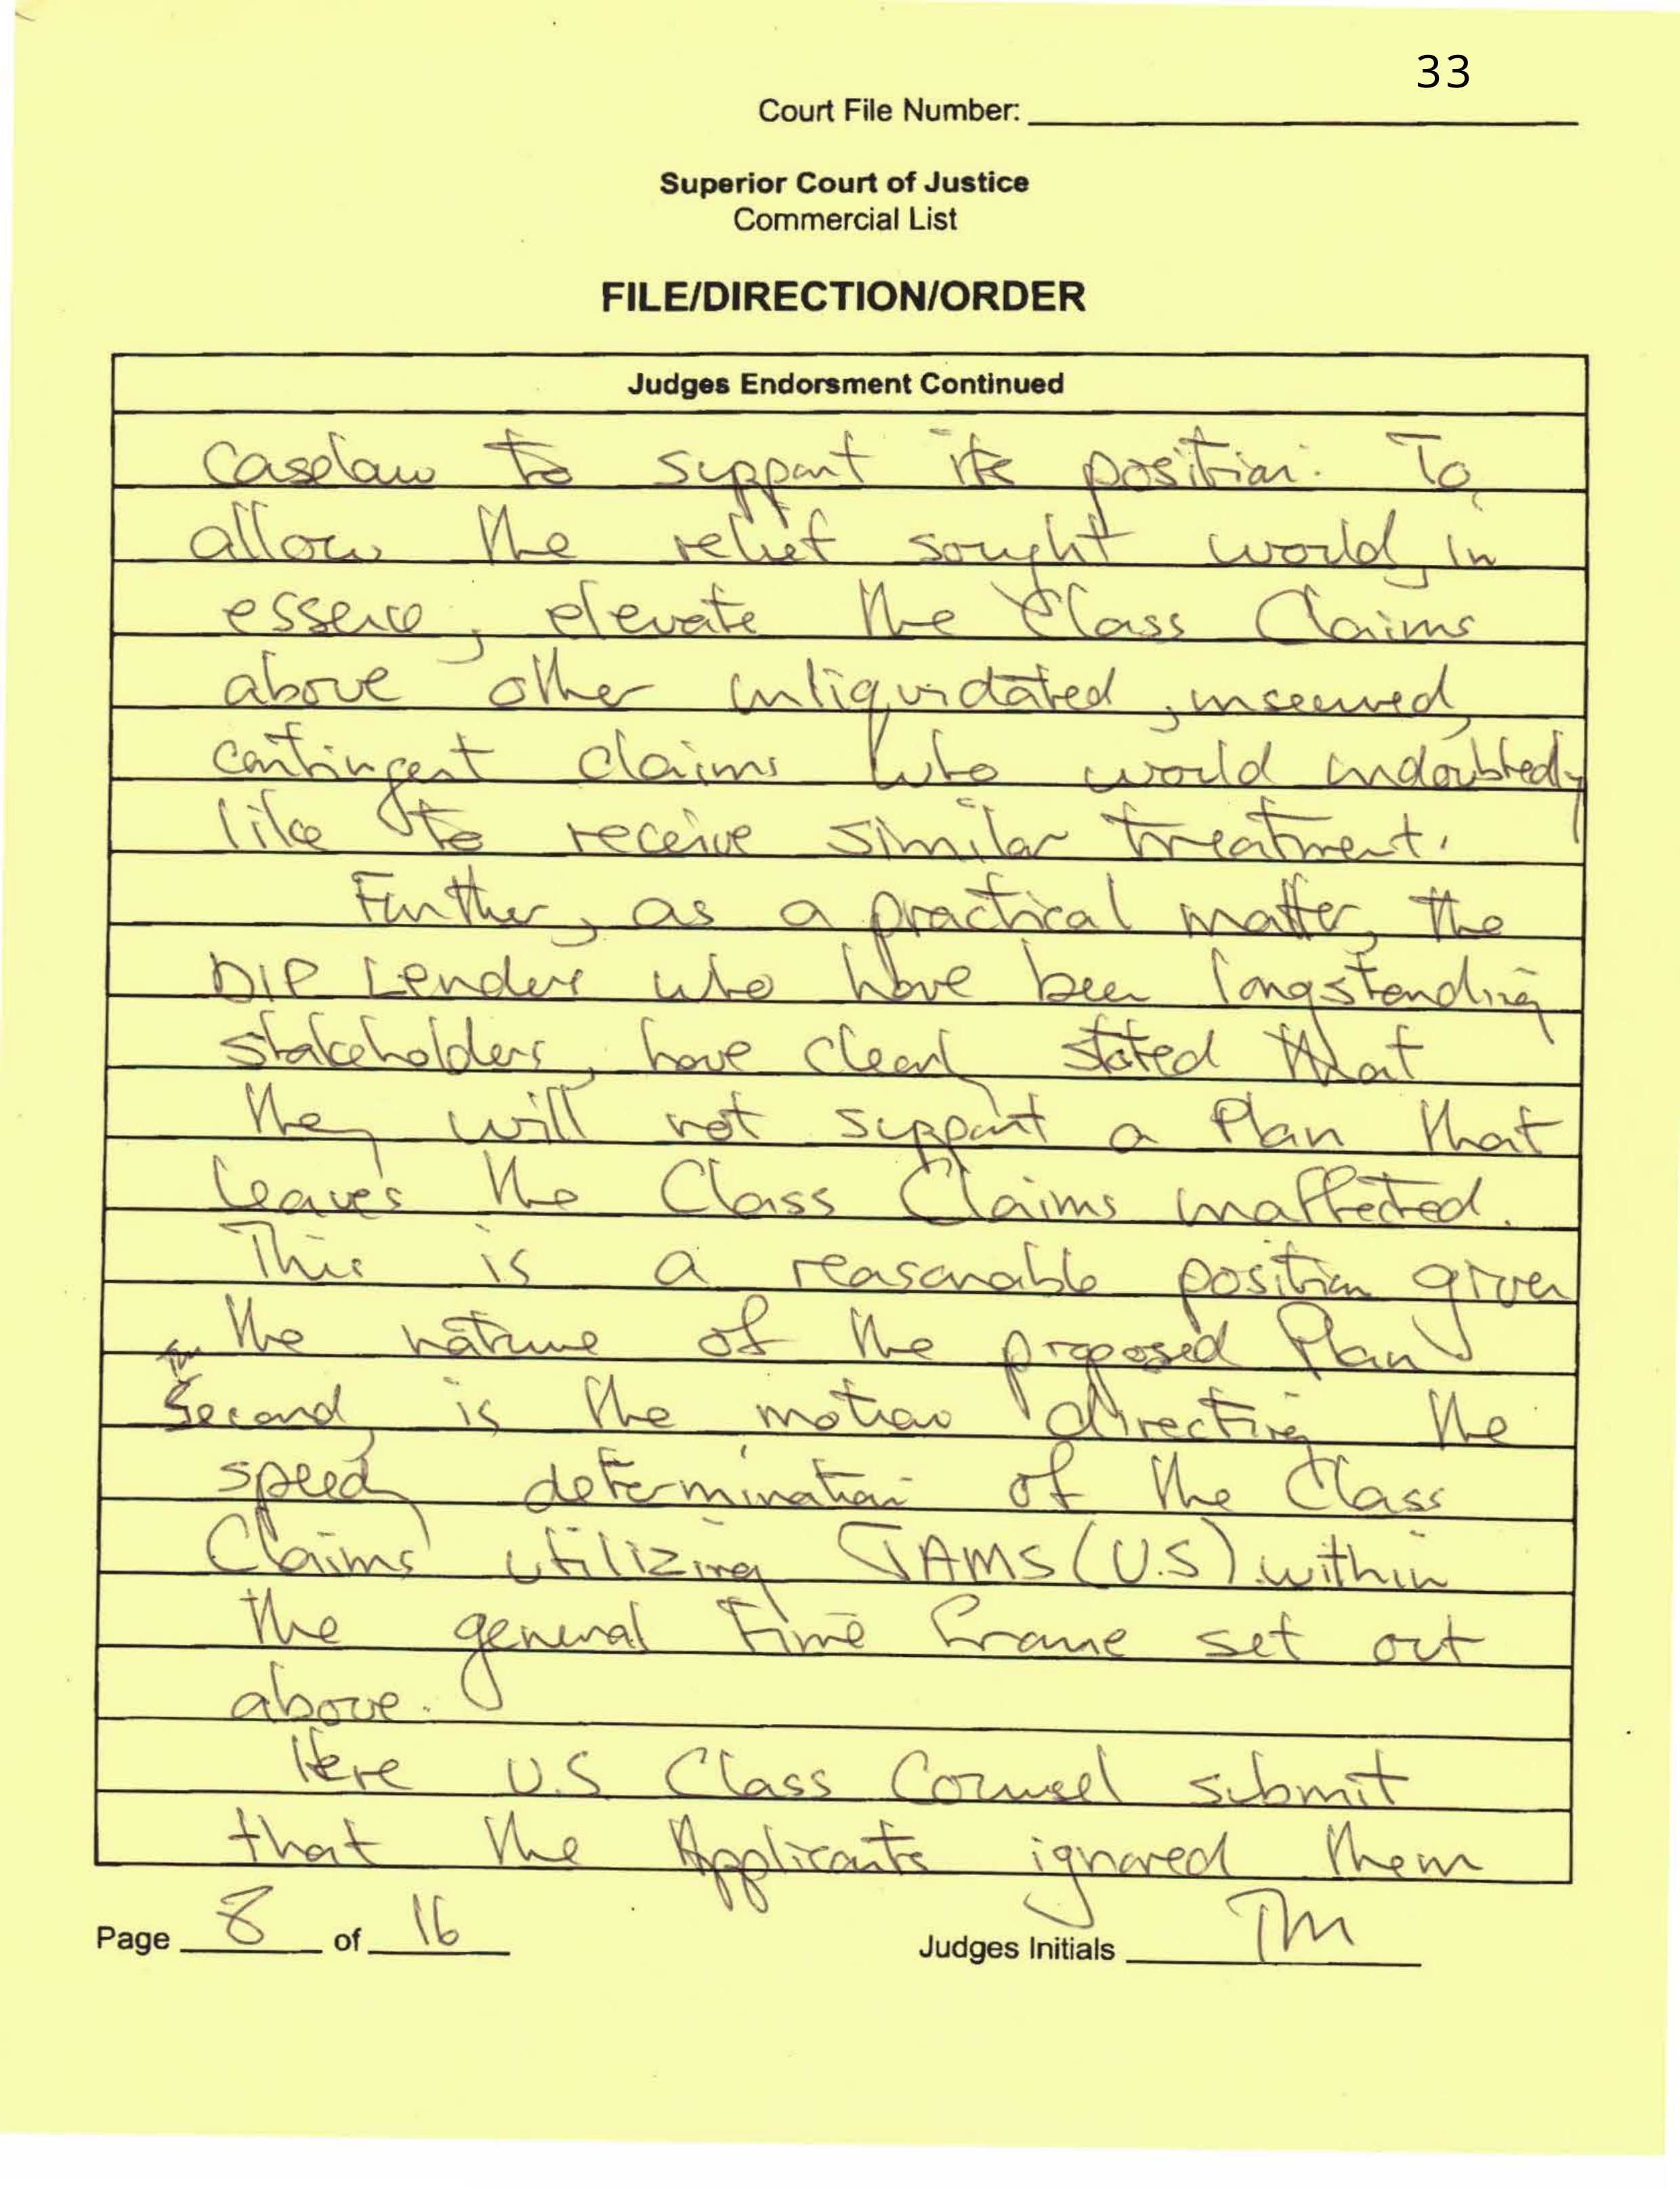 33
Court File Number:
Superior Court of Justice
Commercial List
FILE/DIRECTION/ORDER
Judges Endorsment Continued
Caselaw to support its position. To
allow the relief sought would, in
essence, elevate the Class Claims
above other unliquidated, unsecured,
contingent claims who would undoubtedly
like to receive similar treatment.
Further, as a practical matter, the
DIP Lenders who have been longstanding
stakeholders, have clearly stated that
they will not support a Plan that
leaves the Class Claims unaffected.
This is a reasonable position given
the nature of the proposed Plan
Second, is the motion directing the
speedy determination of the Class
Claims utilizing JAMS (U.S) within
the general time frame set out
above.
Here U.S Class Counsel submit
that the Applicants ignored them
Page 8 of 16
Judges Initials TM